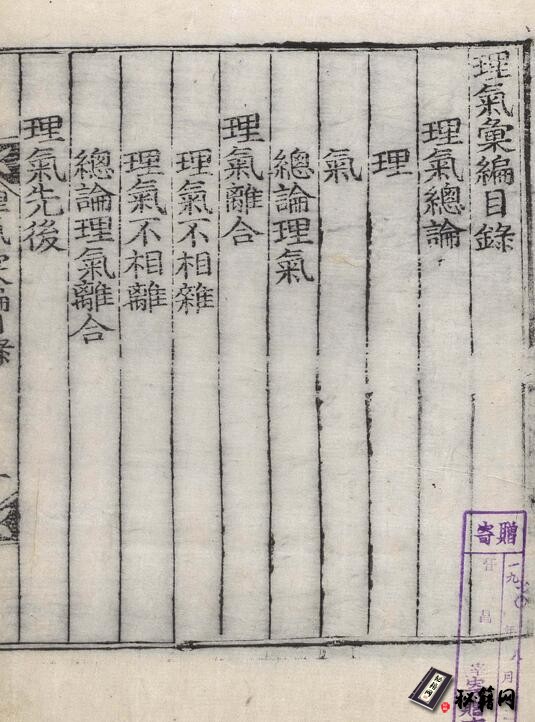 理氣彙編目錄
理氣總論
理
氣
總論理氣
理氣離合
理氣不相雜
理氣不相離
總論理氣離合
理氣先後
寄贈
秘籍网